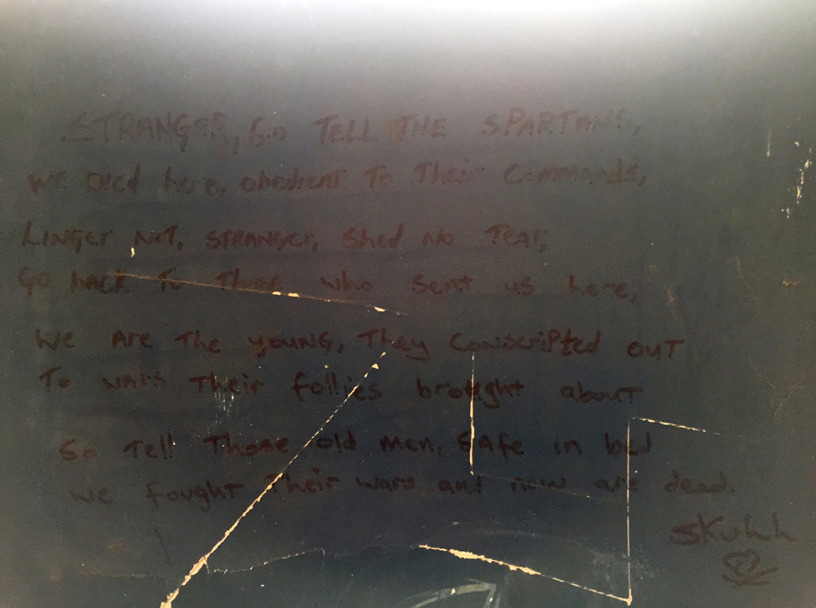 STRANGER, Go TELL THE SPARTANS,
We Died here, obedient To Their Commands,
Linger NoT, STRANGER, Shed No Tear,
Go back To Those who Sent us here,
We Are The young, They Conscripted ouT
To wars Their follies brought abouT
So Tell Those old men, SAfe in bed
We fought Their wars and now are dead.